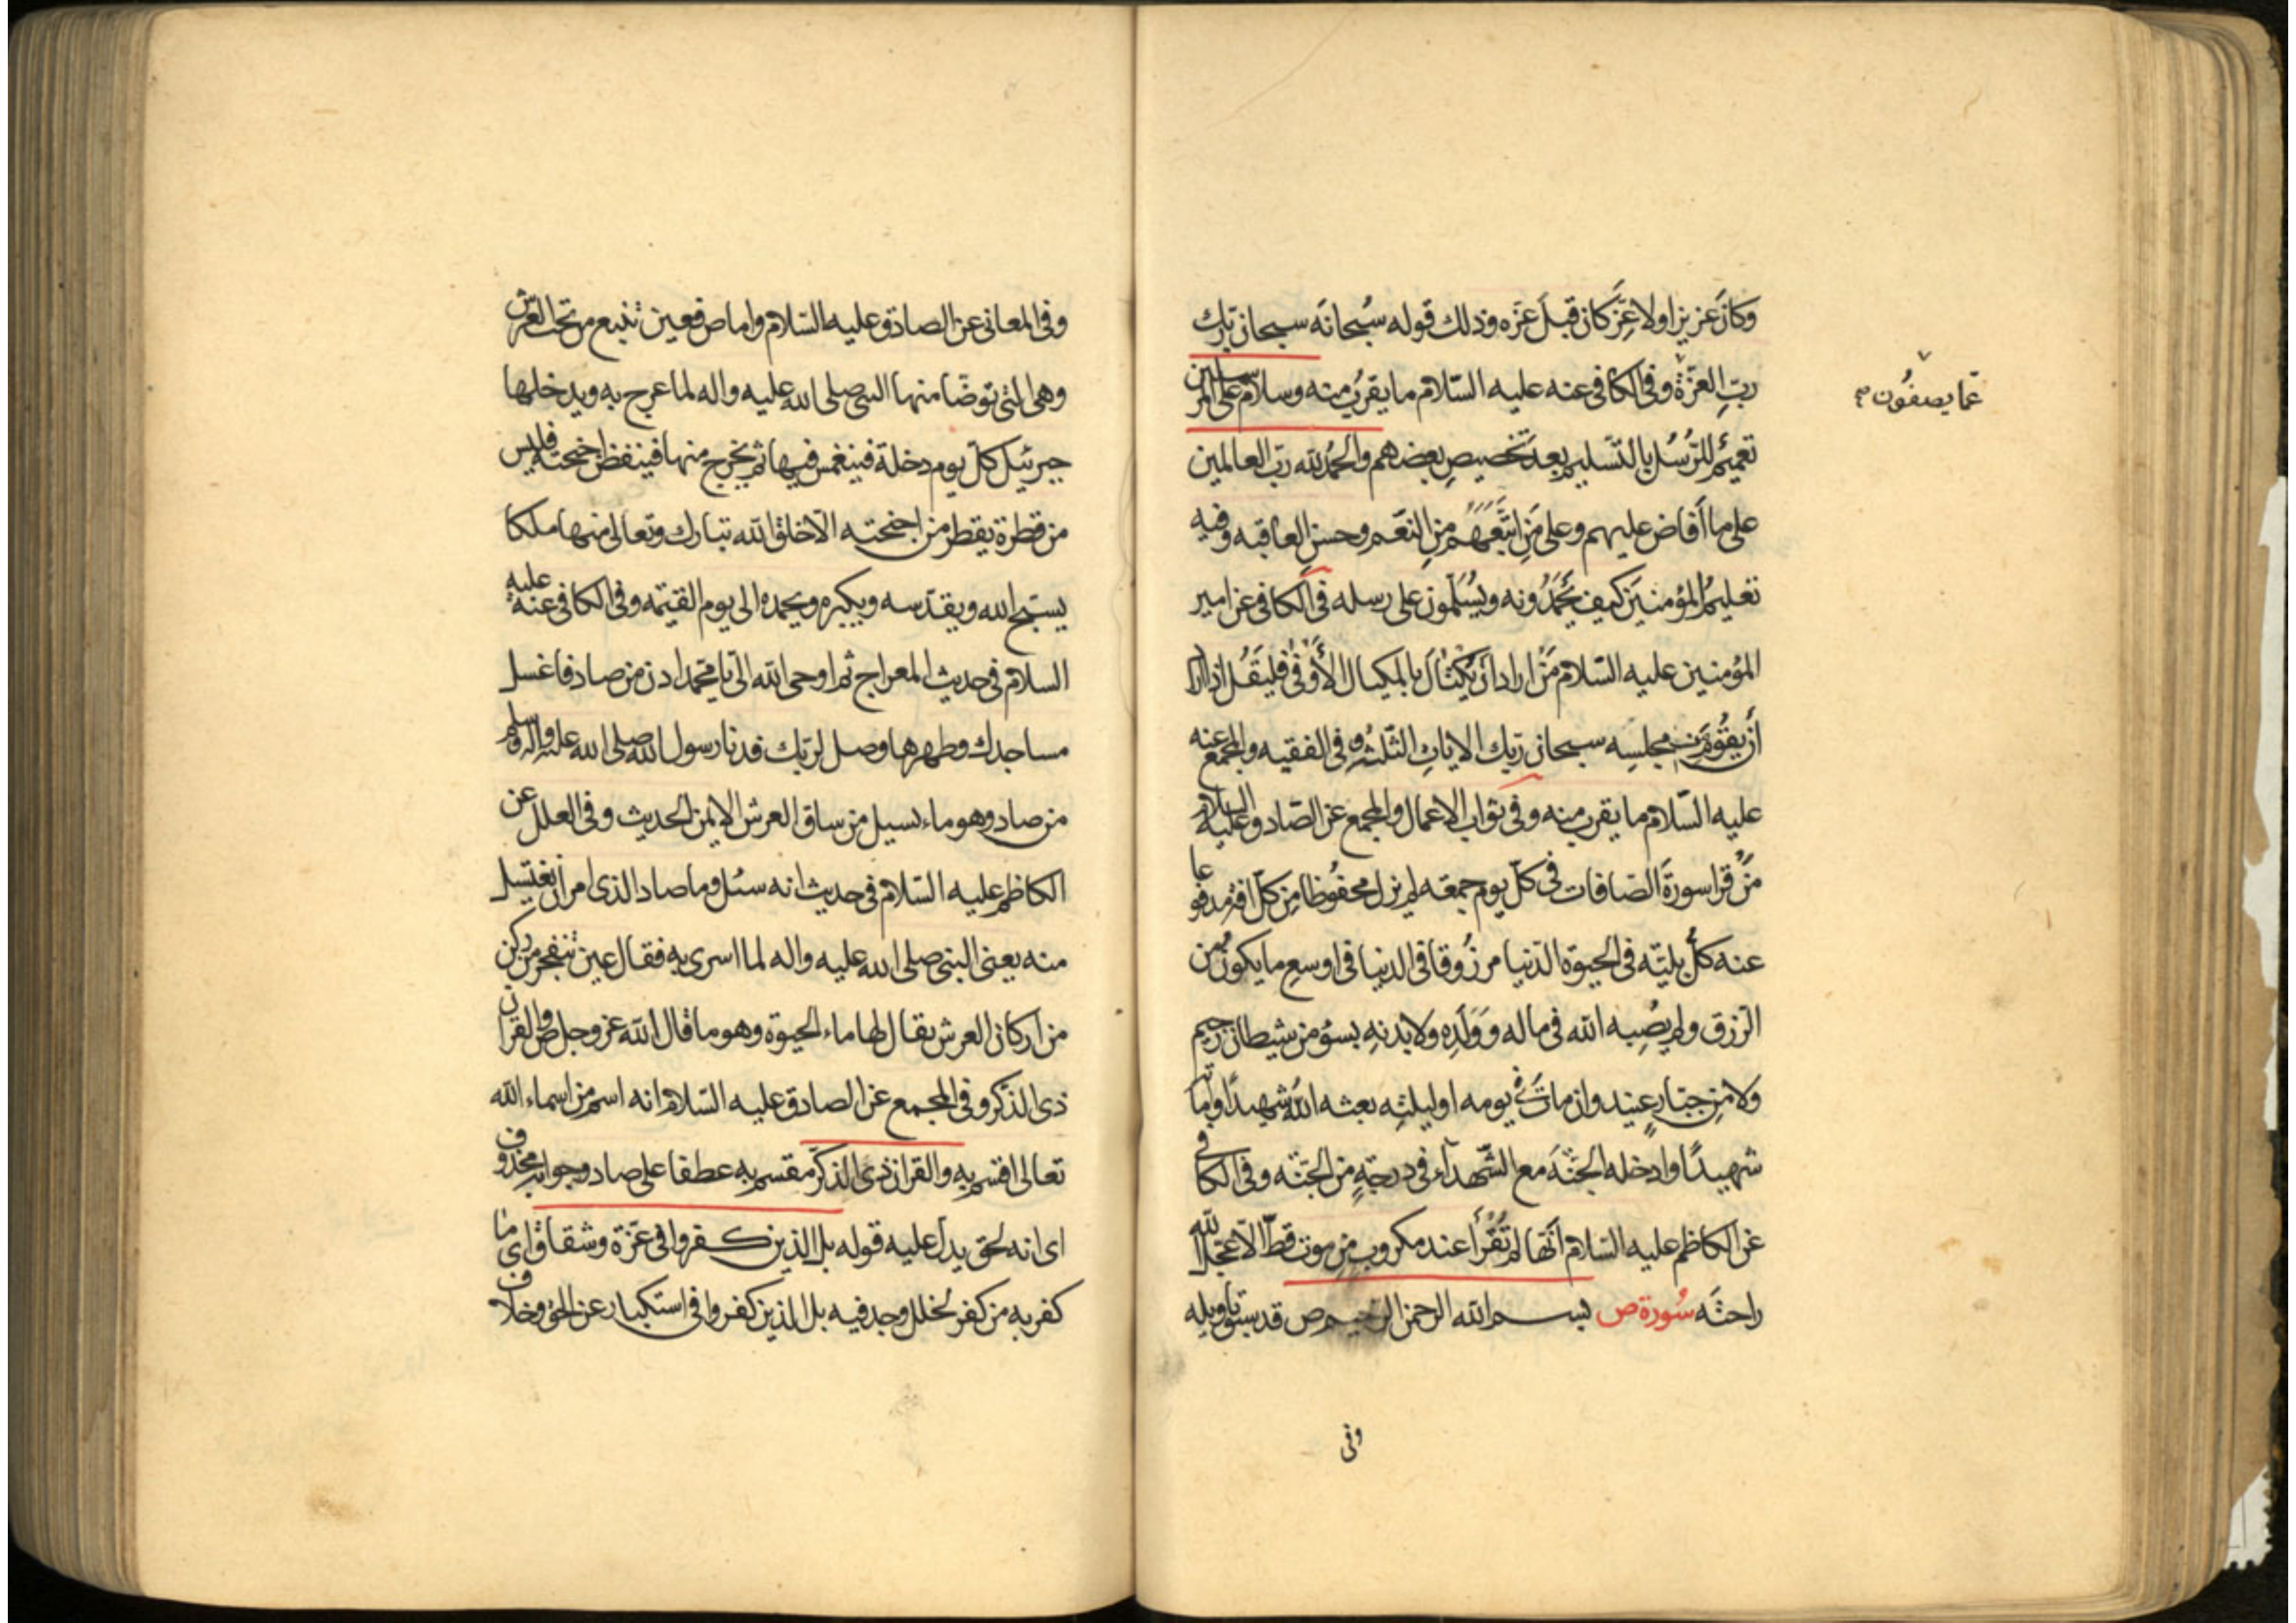 وكان عزيزا ولا عِزَّ كان قبلَ عزّه وذلك قوله سُبحانَه سبحان ربّك
ربِّ العزّة وفي الكافي عنه عليه السّلام ما يقربُ منه وسلام على المرسلين
عمّا يصفُون صح
تعميمٌ للرُسُل بالتّسليم بعدَ تخصيصِ بعضهم والحمُد لله ربّ العالمين
على ما أَفاض عليهم وعلى مَنِ اتبَّعَهُم مِنِ النّعَم وحسنِ العاقبه وفيه
تعليمُ المؤمنينَ كيف يَحمَدُونه ويُسَلّمون على رسله في الكافي عن امير
المؤمنين عليه السّلام مَنْ اراد اَن يَكْتٰالَ بالمكيال الأَوْفٰى فليَقُل اذا اراد
أن يقُومَ مِن مجلسِه سبحان ربّك الايات الثّلٰث وفي الفقيه والمجمع عنه
عليه السّلام ما يقرب منه وفي ثواب الاعمال والمجمع عن الصّادق عليه السلام
مَنْ قرا سورةَ الصّافات في كلّ يوم جمعه لم يزل محفُوظا مِن كلّ افة مدفوعا
عنه كلّ بليّته في الحيوة الدّنيا مرزُوقا في الدنيا في اوسعِ ما يكونُ من
الرّزق ولم يصُبِه الله في ماله ووَلَدِه ولا بدنهِ بسوُء من شيطان رجيم
ولا مِن جبّار عنيد وان ماتَ في يومه او ليلتِه بعثه اللهُ شهيدًا واماته
شهيدًا وادخله الجنّةَ مع الشّهدآء في درجةٍ من الجنّه وفي الكافي
عن الكاظم عليه السّلام أنّها لم تُقْرَأ عند مكروب مِن موت قطّ الّا عجّل الله
راحتَه سُورة ص بسم الله الرحمن الرحيم ص قد سبق تاويله
وفى
وفي المعاني عن الصادق عليه السّلام واما ص فعين تنبع من تحت العرش
وهى التى توضّا منها النبي صلى الله عليه واله لما عرج به ويدخلها
جبرئيل كلّ يوم دخلة فينغمس فيها ثم يخرج منها فينفض اجنحته فليس
من قطرة يقطر من اجنحته الّا خلق الله تبارك وتعالى منها ملكا
يسبّح الله ويقدّسه ويكبره ويحمده الى يوم القيٰمه وفي الكافي عنه عليه
السلام في حديث المعراج ثم اوحى الله الىّ يا محمد ادن من صاد فاغسل
مساجدك وطهرها وصل لربّك فدنا رسول الله صلى الله عليه واله وسلم
من صاد وهو ماء يسيل من ساق العرش الايمن الحديث وفي العلل عن
الكاظم عليه السّلام في حديث انه سئل وما صاد الذى امر ان يغتسل
منه يعني النبي صلى الله عليه واله لما اسرى به فقال عين تنفجر من ركن
من اركان العرش يقال لها ماء الحيوة وهو ما قال الله عز وجل ص والقران
ذى الذّكر وفي المجمع عن الصادق عليه السّلام انه اسم من اسماء الله
تعالى اقسم به والقران ذى الذكر مقسم به عطفا على صاد وجوابه محذوف
اى انه لحق يدل عليه قوله بل الذين كفروا فى عزّة وشقاق اى ما
كفر به من كفر لخلل وجد فيه بل الذين كفروا في استكبار عن الحق وخلاف